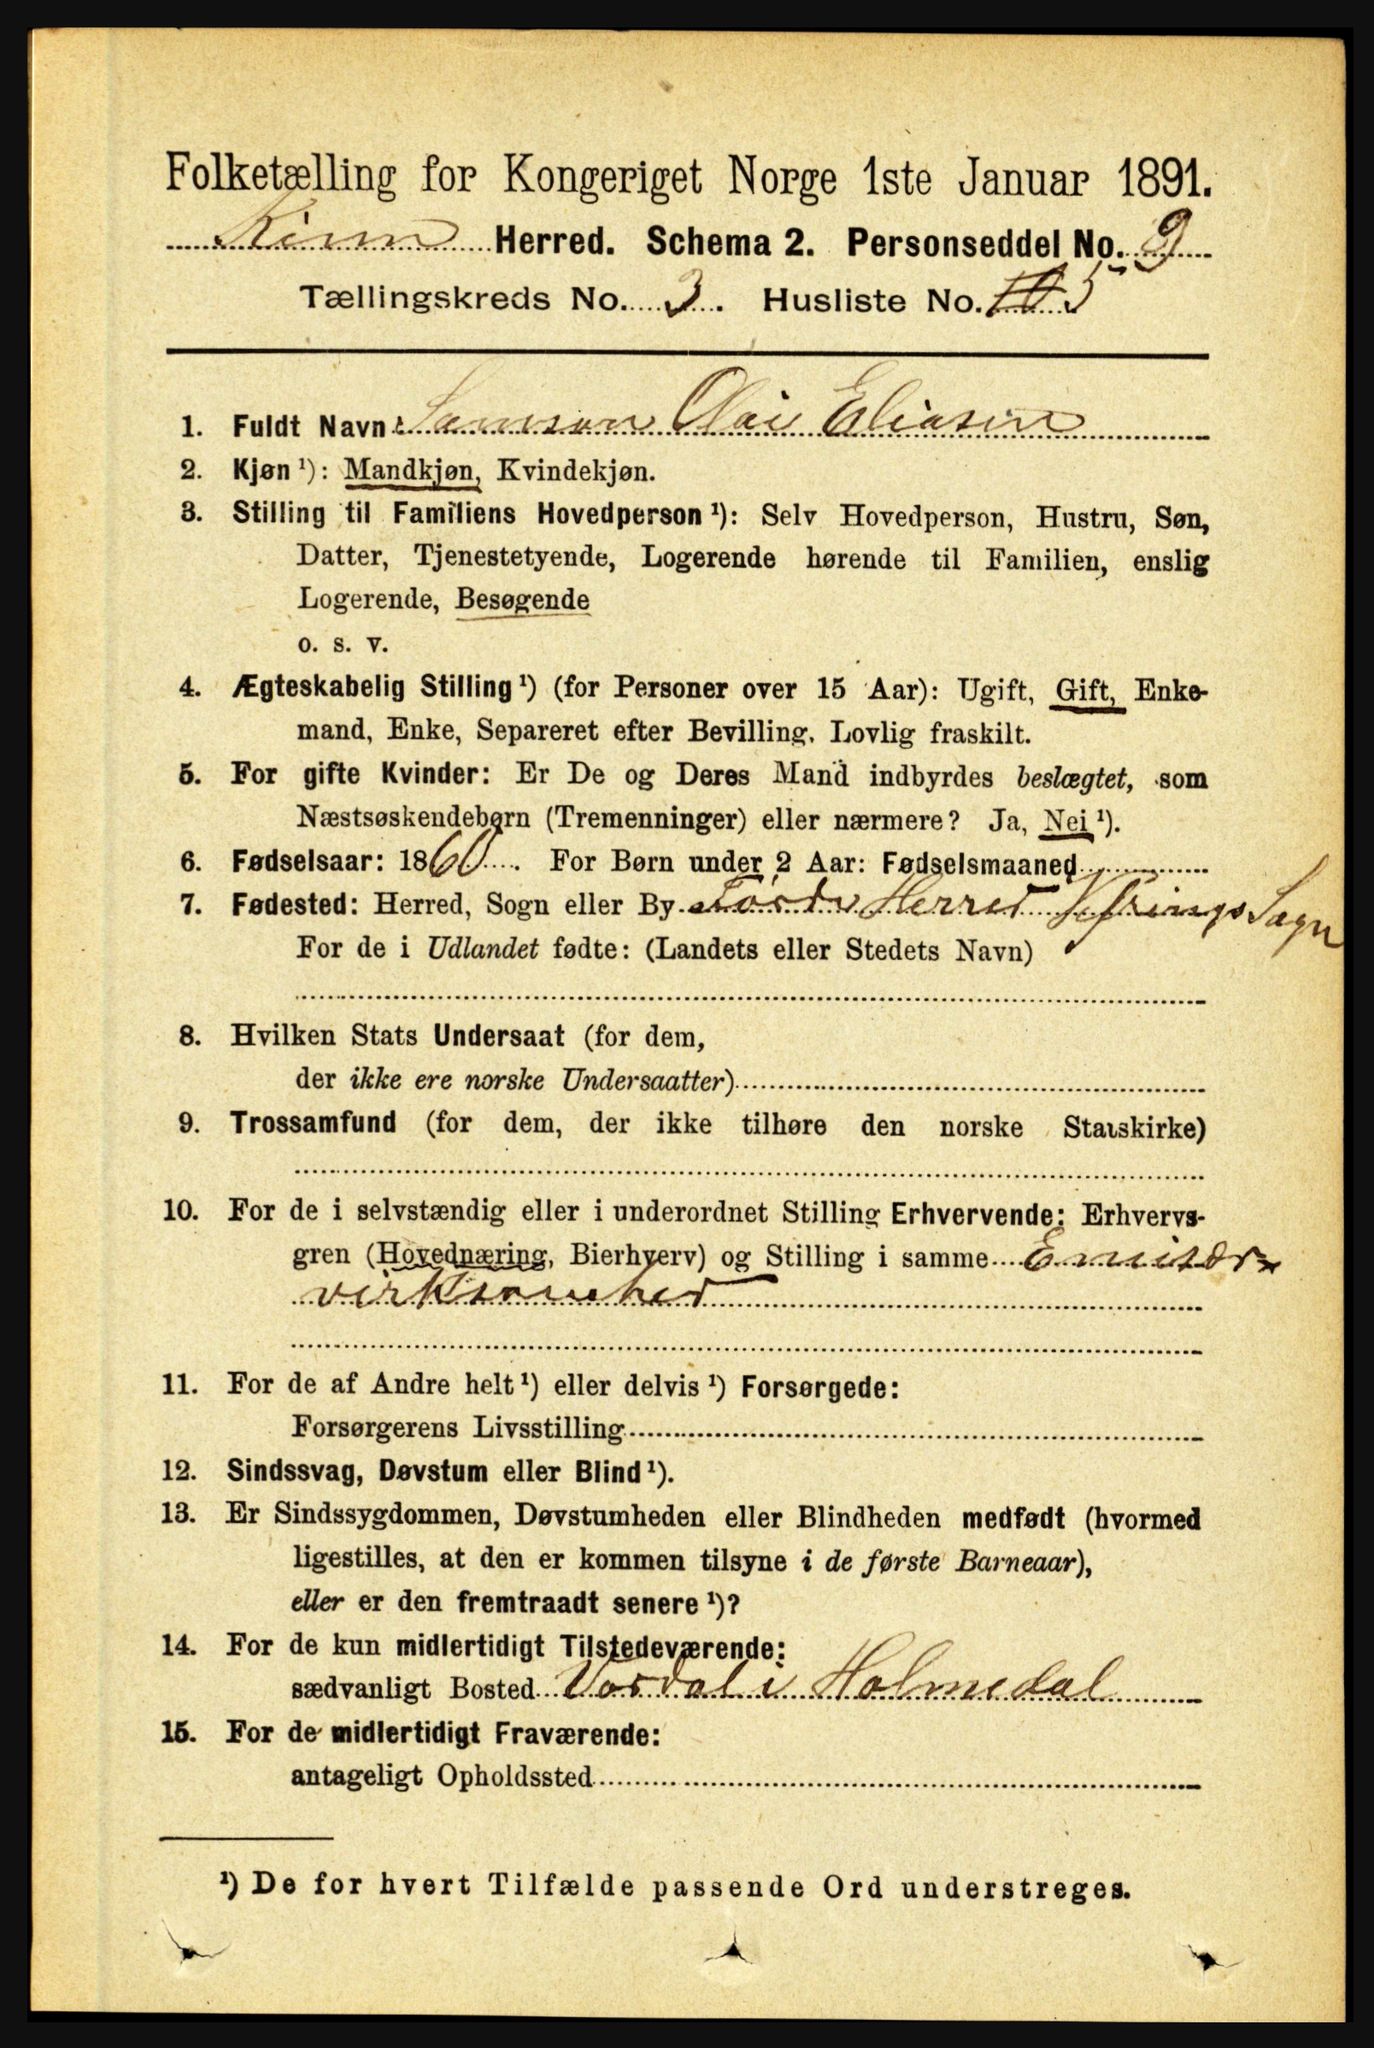 Folketælling for Kongeriget Norge 1ste Januar 1891.
Kinn Herred. Schema 2. Personseddel No. 9
Tællingskreds No. 3. Husliste No. 10 5
1. Fuldt Navn: Samson Olai Eliasen
2. Kjøn ¹): Mandkjøn, Kvindekjøn.
3. Stilling til Familiens Hovedperson ¹): Selv Hovedperson, Hustru, Søn,
Datter, Tjenestetyende, Logerende hørende til Familien, enslig
Logerende, Besøgende
o. s. v.
4. Ægteskabelig Stilling ¹) (for Personer over 15 Aar): Ugift, Gift, Enke-
mand, Enke, Separeret efter Bevilling. Lovlig fraskilt.
5. For gifte Kvinder: Er De og Deres Mand indbyrdes beslægtet, som
Næstsøskendebørn (Tremenninger) eller nærmere? Ja, Nei ¹).
6. Fødselsaar: 1860. For Børn under 2 Aar: Fødselsmaaned
7. Fødested: Herred, Sogn eller By Førde Herred Sogn
For de i Udlandet fødte: (Landets eller Stedets Navn)
8. Hvilken Stats Undersaat (for dem,
der ikke ere norske Undersaatter)
9. Trossamfund (for dem, der ikke tilhøre den norske Statskirke)
10. For de i selvstændig eller i underordnet Stilling Erhvervende: Erhvervs-
gren (Hovednæring, Bierhverv) og Stilling i samme Emisær-
virksomhed
11. For de af Andre helt ¹) eller delvis ¹) Forsørgede:
Forsørgerens Livsstilling
12. Sindssvag, Døvstum eller Blind ¹).
13. Er Sindssygdommen, Døvstumheden eller Blindheden medfødt (hvormed
ligestilles, at den er kommen tilsyne i de første Barneaar),
eller er den fremtraadt senere ¹)?
14. For de kun midlertidigt Tilstedeværende:
sædvanligt Bosted Vasdal i Holmedal
15. For de midlertidigt Fraværende:
antageligt Opholdssted
¹) De for hvert Tilfælde passende Ord understreges.